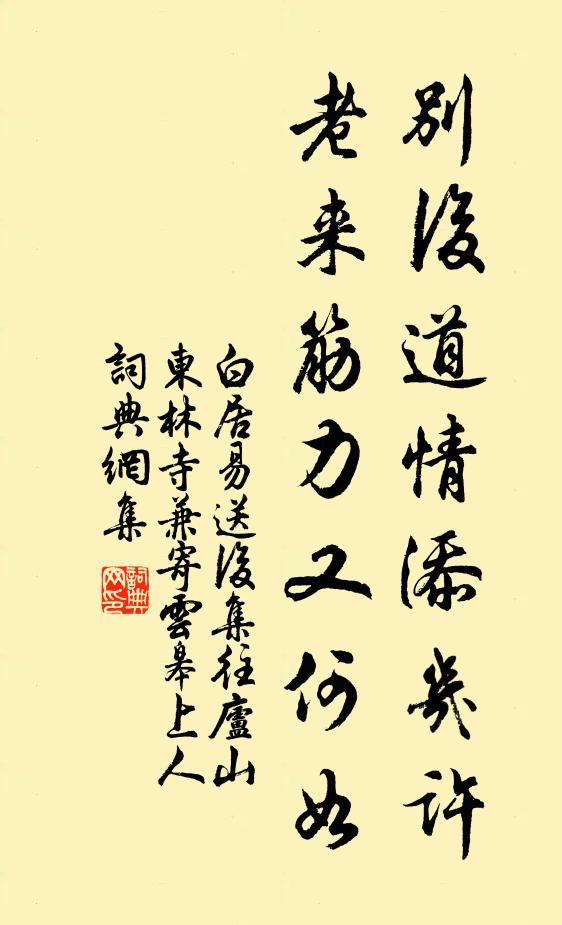 別後道情添幾許
老来筋力又何如
白居易送後集往廬山
東林寺兼寄雲皋上人
詞典網集
詞典网印